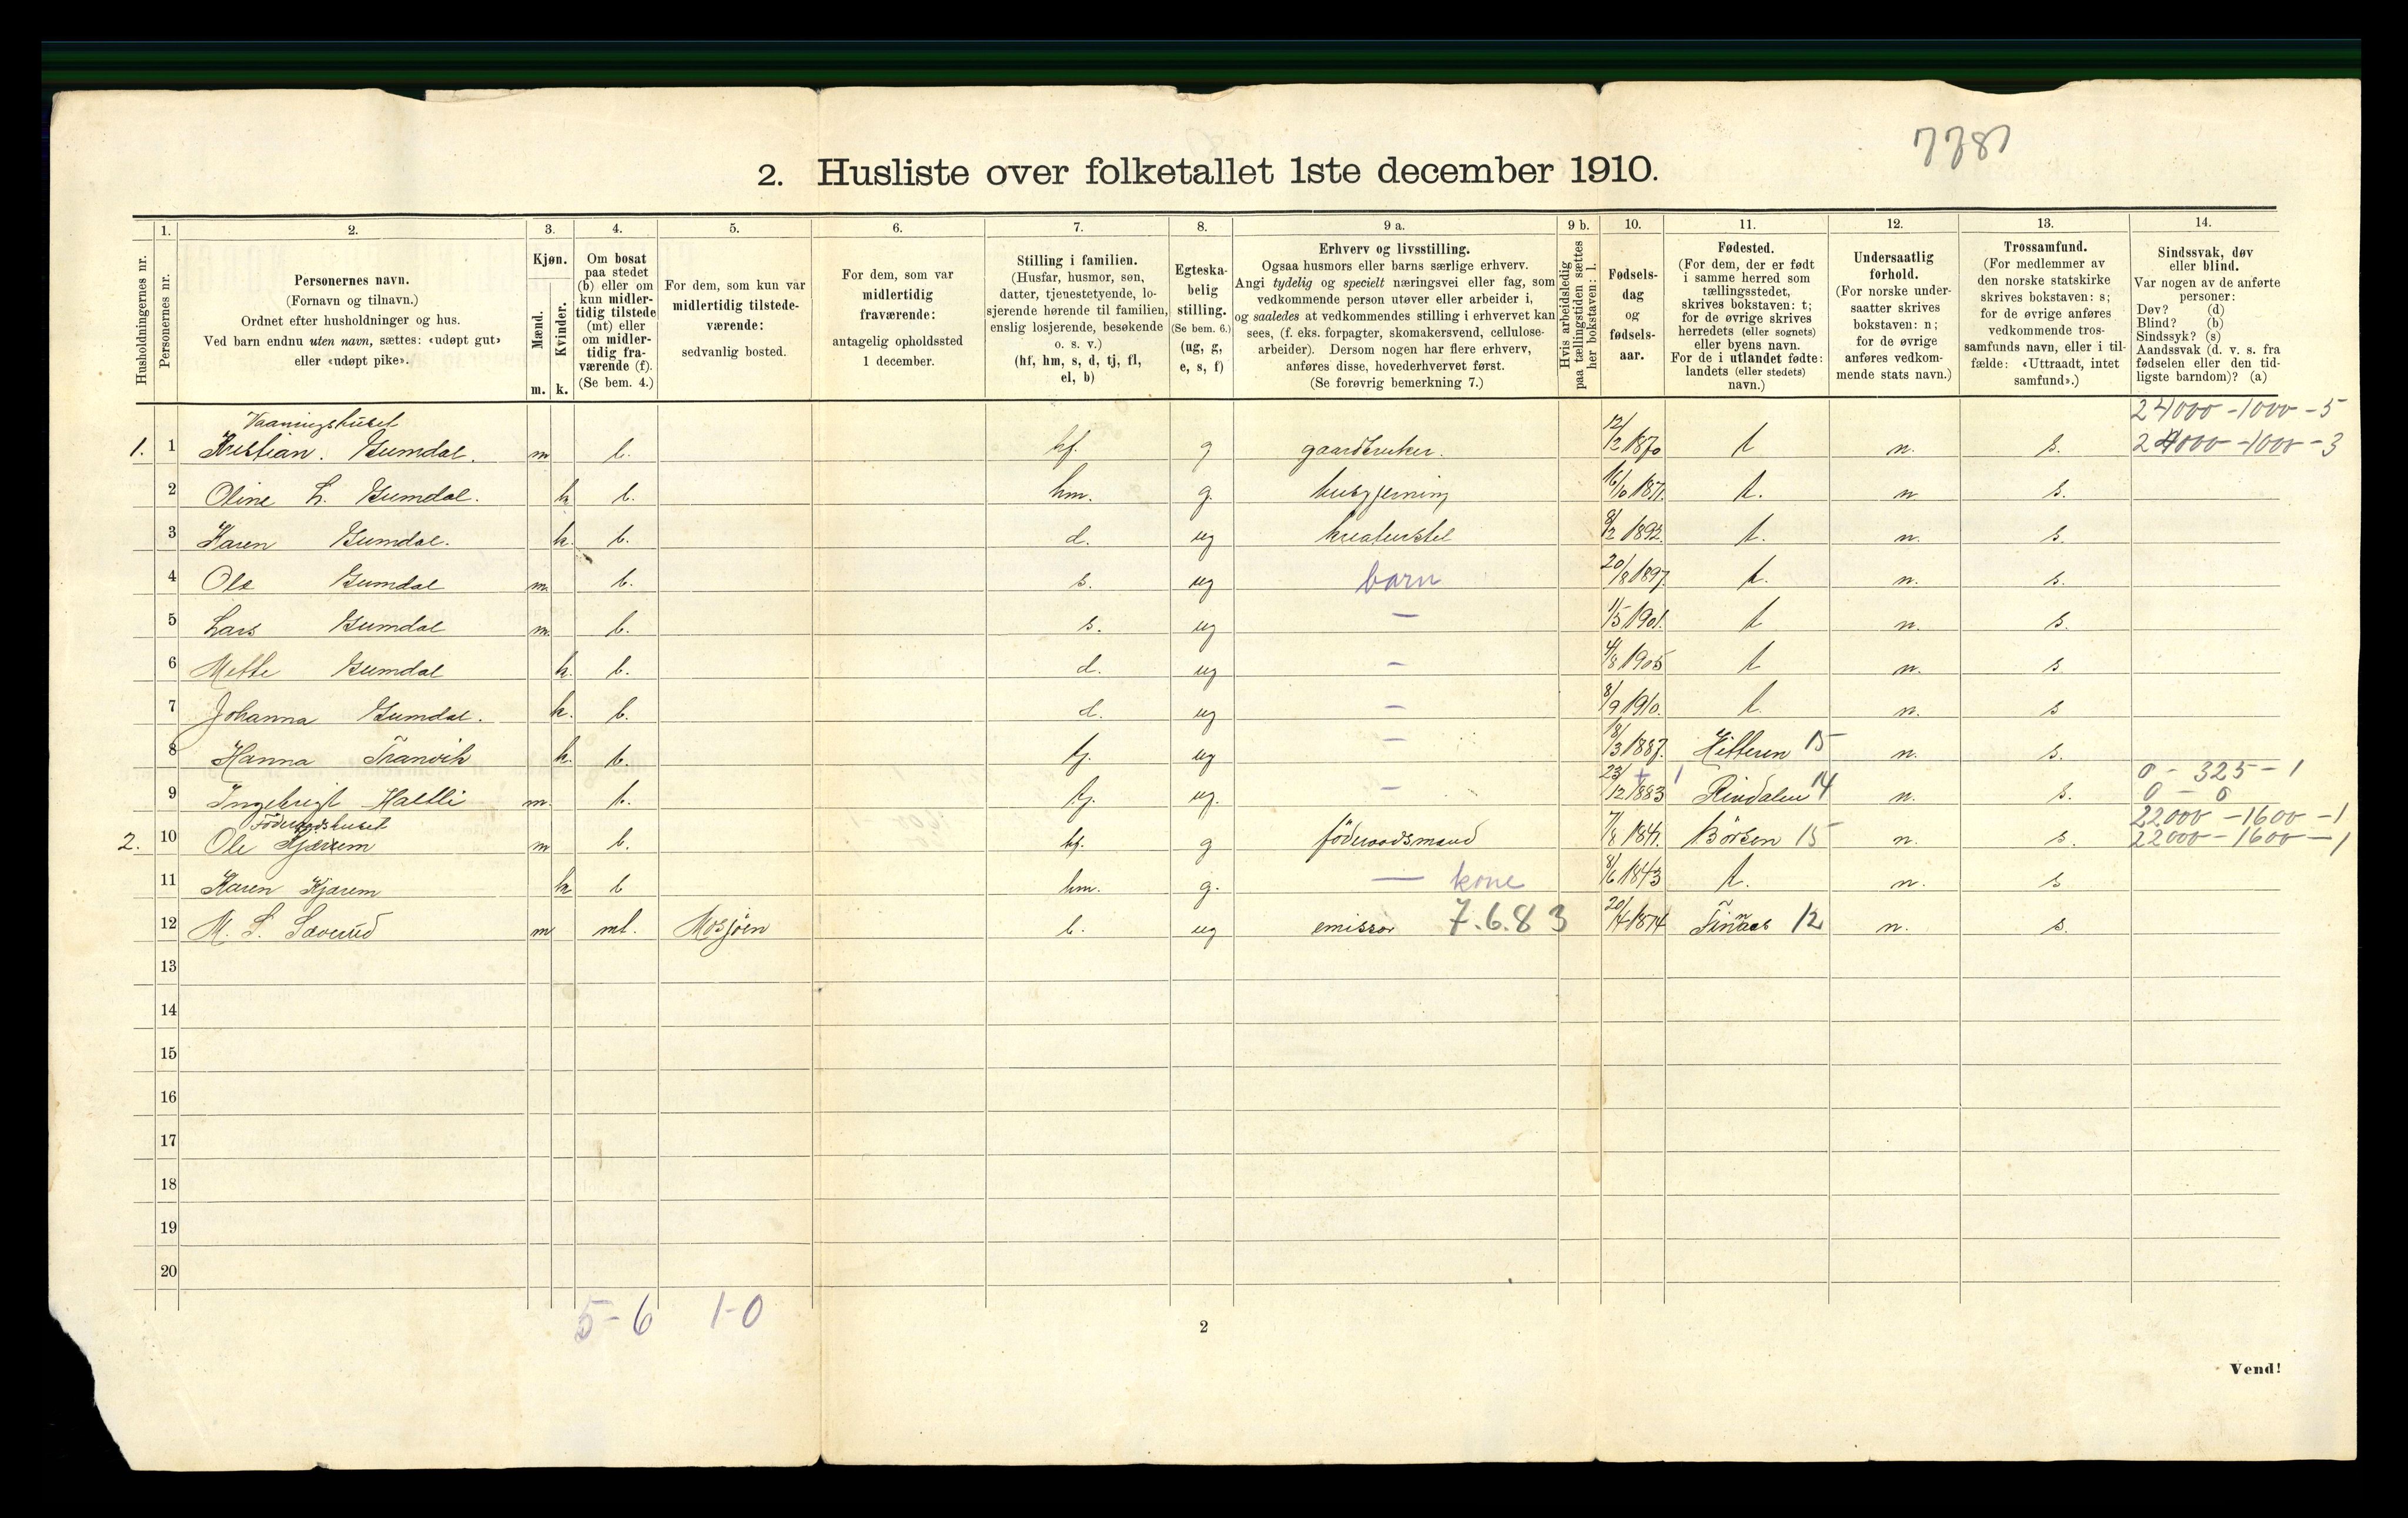 7781
2. Husliste over folketallet 1ste december 1910.
1. 2. 3. 4. 5. 6. 7. 8. 9 a. 9 b. 10. 11. 12. 13. 14.
Husholdningernes nr.
Personernes nr.
Personernes navn.
(Fornavn og tilnavn.)
Ordnet efter husholdninger og hus.
Ved barn endnu uten navn, sættes: «udøpt gut»
eller «udøpt pike».
Kjøn.
Mænd.
Kvinder.
m. k.
Om bosat
paa stedet
(b) eller om
kun midler-
tidig tilstede
(mt) eller
om midler-
tidig fra-
værende (f).
(Se bem. 4.)
For dem, som kun var
midlertidig tilstede-
værende:
sedvanlig bosted.
For dem, som var
midlertidig
fraværende:
antagelig opholdssted
1 december.
Stilling i familien.
(Husfar, husmor, søn,
datter, tjenestetyende, lo-
sjerende hørende til familien,
enslig losjerende, besøkende
o. s. v.)
(hf, hm, s, d, tj, fl,
el, b)
Egteska-
belig
stilling.
(Se bem. 6.)
(ug, g,
e, s, f)
Erhverv og livsstilling.
Ogsaa husmors eller barns særlige erhverv.
Angi tydelig og specielt næringsvei eller fag, som
vedkommende person utøver eller arbeider i,
og saaledes at vedkommendes stilling i erhvervet kan
sees, (f. eks. forpagter, skomakersvend, cellulose-
arbeider). Dersom nogen har flere erhverv,
anføres disse, hovederhvervet først.
(Se forøvrig bemerkning 7.)
Hvis arbeidsledig
paa tællingstiden sættes
her bokstaven: l.
Fødsels-
dag
og
fødsels-
aar.
Fødested.
(For dem, der er født
i samme herred som
tællingsstedet,
skrives bokstaven: t;
for de øvrige skrives
herredets (eller sognets)
eller byens navn.
For de i utlandet fødte:
landets (eller stedets)
navn.)
Undersaatlig
forhold.
(For norske under-
saatter skrives
bokstaven: n;
for de øvrige
anføres vedkom-
mende stats navn.)
Trossamfund.
(For medlemmer av
den norske statskirke
skrives bokstaven: s;
for de øvrige anføres
vedkommende tros-
samfunds navn, eller i til-
fælde: «Uttraadt, intet
samfund».)
Sindssvak, døv
eller blind.
Var nogen av de anførte
personer:
Døv? (d)
Blind? (b)
Sindssyk? (s)
Aandssvak (d. v. s. fra
fødselen eller den tid-
ligste barndom)? (a)
Vaaningshuset 24000 - 1000 - 5
1. 1 Kristian. Gumdal. m b. hf. g gaardbruker. 12/12 1870 t n. s. 24000 - 1000 - 3
2 Oline L. Gumdal. k b. hm. g. husgjerning 16/6 1871. t. n s.
3 Karen Gumdal. k. b. d. ug kreaturstel 8/2 1892. t. n. s.
4 Ole Gumdal m. b. s. ug barn 20/8 1897. t. n. s.
5 Lars Gumdal m. b. s. ug — 1/5 1901. t n. s.
6 Mette Gumdal k. b. d. ug — 4/8 1905 t n. s
7 Johanna Gumdal. k. b. d. ug — 8/9 1910. t. n. s
8 Hanna Tranvik k. b. tj. ug — 18/3 1887. Hitteren 15 n. s.
0 - 325 - 1
9 Ingebrigt Haltli m. b. tj. ug. — 23/12 1883 + 1 Rindalen 14 n. s. 0 - 0
Föderaadshuset 22000 - 1600 - 1
2. 10 Ole Kjærem m b. hf. g föderaadsmand 7/8 1841. Börsen 15 n. s. 22000 - 1600 - 1
11 Karen Kjærem k b hm. g. — kone 8/6 1843 t. n. s
12 M. S. Sæverud m mt. Mosjöen b. ug emissær 7.6.83 20/4 1874 Finnaas 12 n. s.
13
14
15
16
17
18
19
20
5 - 6 1 - 0
2
Vend!